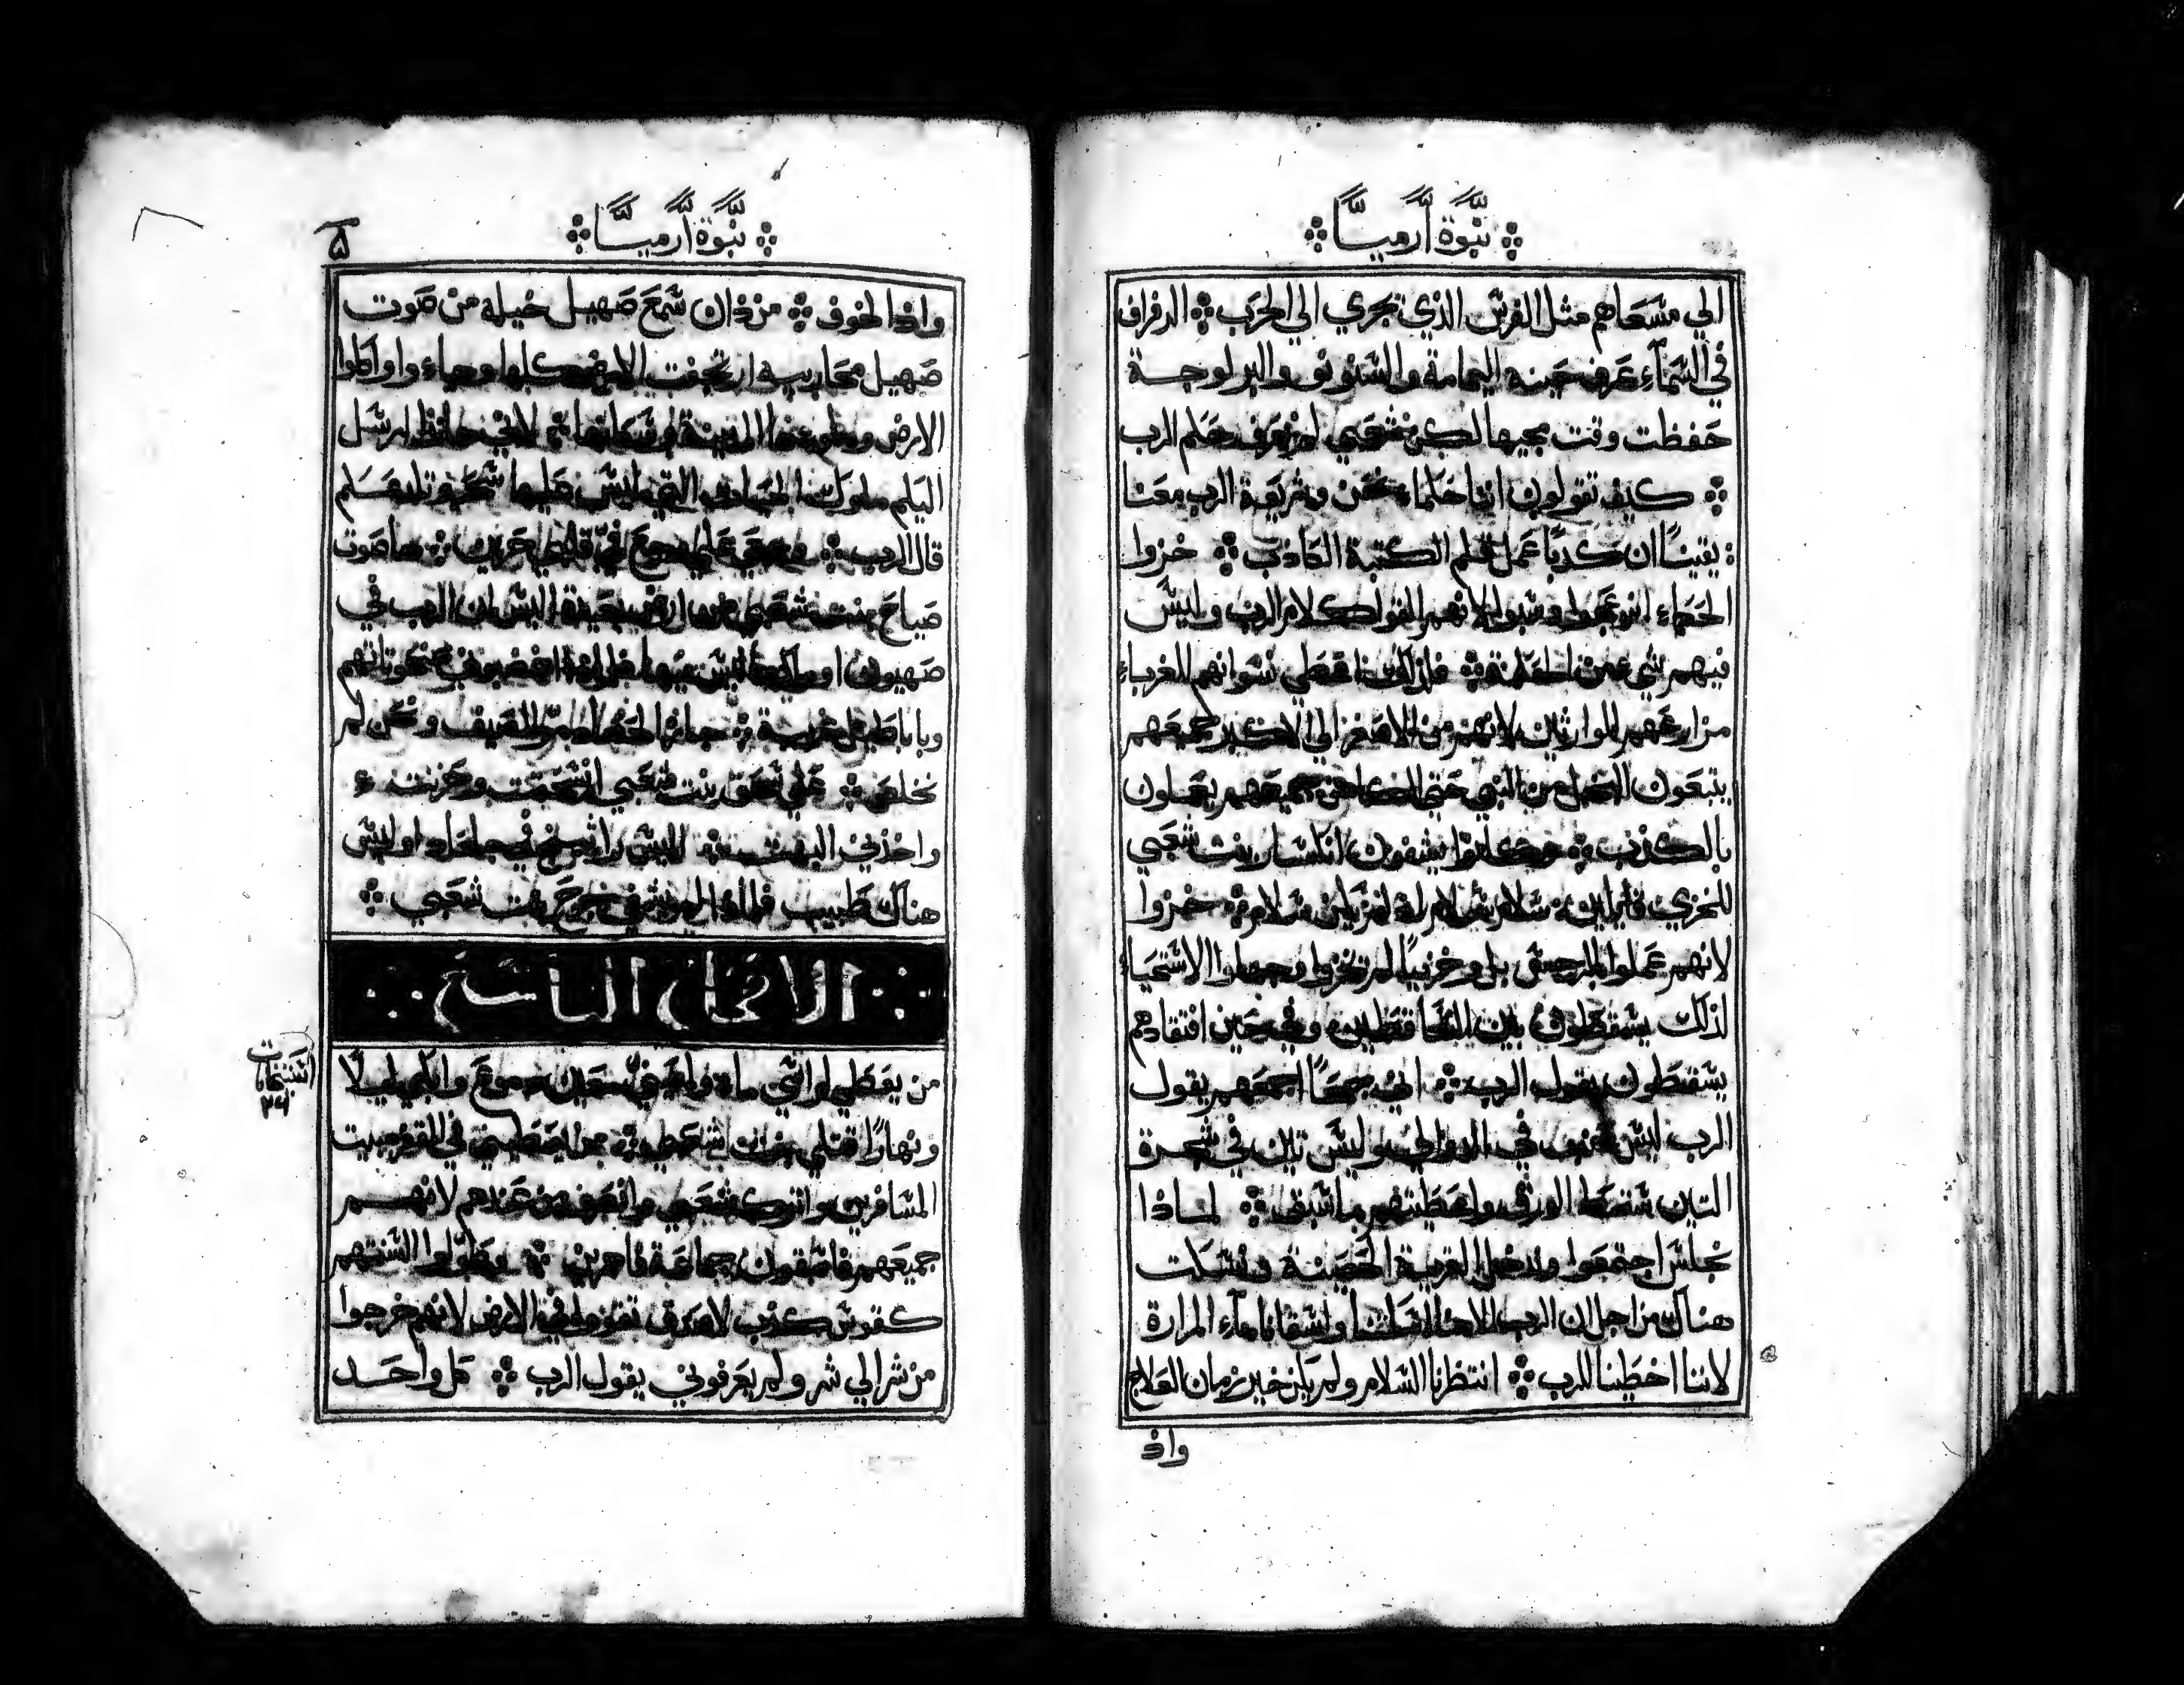 نبوة أرميا
الي مسعاهم مثل الفرس الذي تجري الي الحرب الدفراف
في السماء عرف حينه اليمامة والسنونو والبرلوجة
حفظت وقت مجيها لكن شعبي لم يعرف حكم الرب
كيف تقولون اننا حكماء نحن وشريعة الرب معنا
يقيناً ان كدباً عمل قلم الكتبة الكاذب خزوا
الحكماء انزعجوا وسبوا لانهم القوا كلام الرب وليس
فيهم شي من الحكمة فلذلك اعطي نسوانهم للغرباء
مزارعهم للوارثين لانهم من الاصغر الي الاكبر جميعهم
يتبعون البخل من النبي حتي الكاهن جميعهم يعملون
بالكذب وكانوا يشفون انكسار بنت شعبي
للخزي قايلين سلام سلام ولم يكن سلام خزوا
لانهم عملوا الرجس بل وخزياً لم تخزوا وجهلوا الاستحياء
لذلك يسقطون بين الساقطين وفي حين افتقادهم
يسقطون يقول الرب اني جمعاً اجمعهم يقول
الرب ليس عنب في الدوالي وليس تين في شجرة
التين سقط الورق واعطيتهم ما سبق لماذا
نجلس اجتمعوا وندخل القرية الحصينة ونسكت
هناك من اجل ان الرب الاهنا اسكتنا واسقانا ماء المرارة
لاننا اخطينا للرب انتظرنا السلام ولم يكن خير زمان العلاج
واذ
نبوة أرميا
٥
واذا الخوف من ذان سمع صهيل خيله من صوت
صهيل محاربيه ارتجفت الارض كلها وجاءوا واكلوا
الارض وملوها المدينة وسكانها لاني هانذا ارسل
اليكم ملوك الحيات التي ليس عليها سحر وتلدغكم
قال الرب وجعي علي وجع في قلبي حزين ها صوت
صياح بنت شعبي من ارض بعيدة اليس ان الرب في
صهيون او ملكها ليس فيها فلماذا اغضبوني بمنحوتاتهم
وباباطيل غريبة جاز الحصاد مر الصيف ونحن لم
نخلص علي سحق بنت شعبي انسحقت وحزنت
واخذني البهت اليس راتينج في جلعاد او ليس
هناك طبيب فلماذا لم يشفي جرح بنت شعبي
الاصحاح التاسع
من يعطي لراسي ماء ولعيني معين دموع وابكي ليلاً
ونهاراً قتلي بنت شعبي من يعطيني في القفر مبيت
المسافرين واترك شعبي وانصرف من عندهم لانهم
جميعهم فاسقون جماعة فاجرين ومطوا السنتهم
كقوس كذب لا صدق تقووا في الارض لانهم خرجوا
من شر الي شر ولم يعرفوني يقول الرب كل واحد